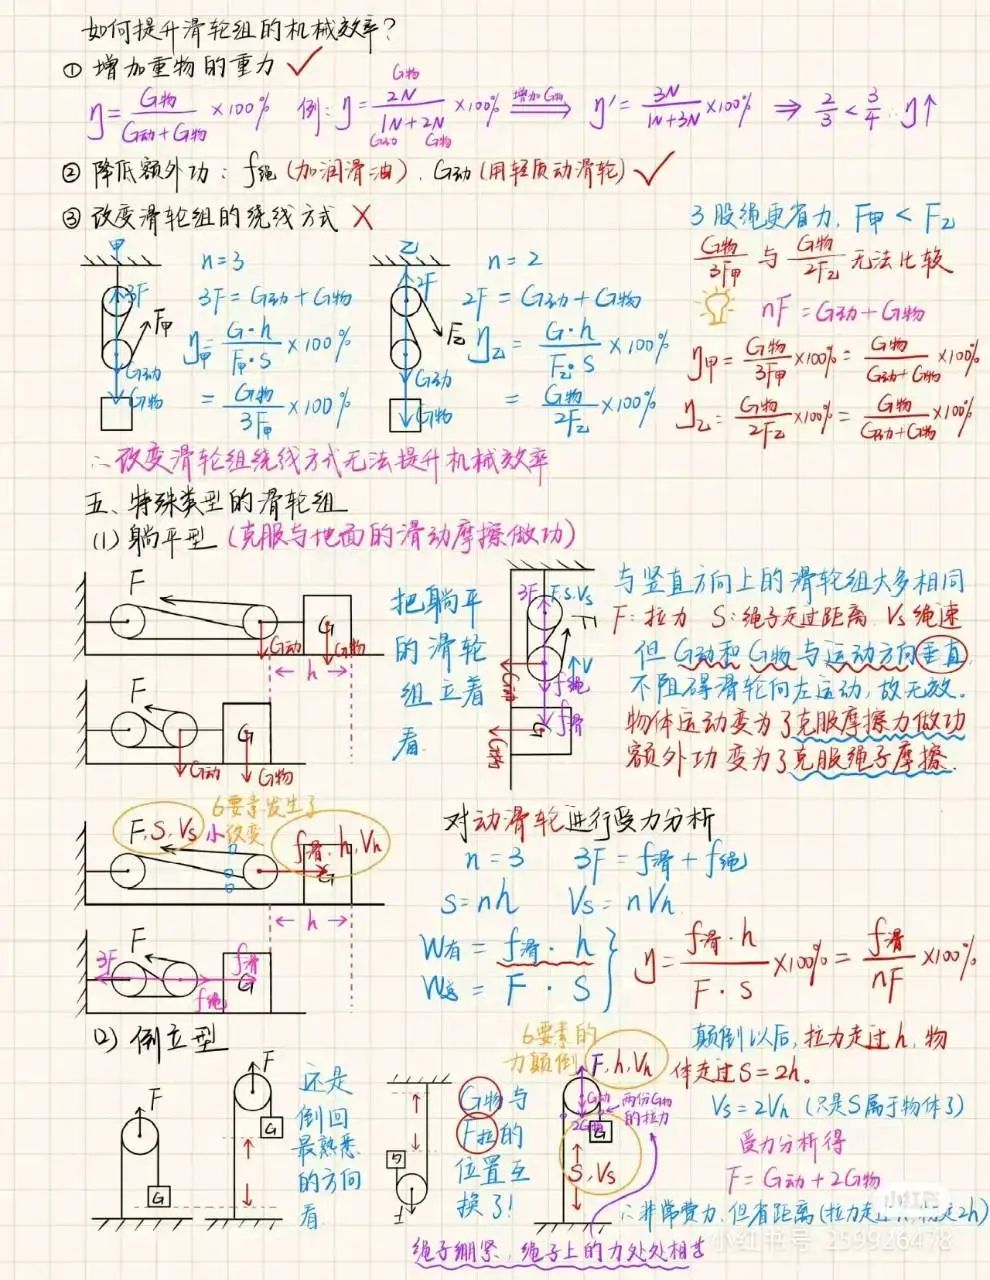 如何提升滑轮组的机械效率?
① 增加重物的重力 ✓
η = G物/(G动+G物) ×100% 例: η = 2N/(1N+2N) ×100% 增加G物 ⇒ η' = 3N/(1N+3N) ×100% ⇒ 2/3 < 3/4 ∴ η↑
G物
G动 G物
② 降低额外功: f绳 (加润滑油), G动 (用轻质动滑轮) ✓
③ 改变滑轮组的绕线方式 ✗
甲
n=3
3F
F甲
3F = G动+G物
η甲 = G·h/F甲·S ×100%
= G物/3F甲 ×100%
G动
G物
乙
n=2
2F
F乙
2F = G动+G物
η乙 = G·h/F乙·S ×100%
= G物/2F乙 ×100%
G动
G物
3股绳更省力, F甲 < F乙
G物/3F甲 与 G物/2F乙 无法比较
nF = G动+G物
η甲 = G物/3F甲 ×100% = G物/(G动+G物) ×100%
η乙 = G物/2F乙 ×100% = G物/(G动+G物) ×100%
∴改变滑轮组绕线方式无法提升机械效率
五、特殊类型的滑轮组
(1) 躺平型 (克服与地面的滑动摩擦做功)
F
G
G动
G物
h
F
G
G动
G物
把躺平
的滑轮
组立着
看.
3F
F,S,Vs
F
V
f绳
f滑
G动
G
G物
与竖直方向上的滑轮组大多相同
F: 拉力 S: 绳子走过距离 Vs 绳速
但 G动和 G物与运动方向垂直
不阻碍滑轮向左运动, 故无效.
物体运动变为了克服摩擦力做功
额外功变为了克服绳子摩擦.
6要素发生了
小改变
F,S,Vs
f滑,h,Vh
G
h
F
3F
f滑
G
f绳
对动滑轮进行受力分析
n=3 3F = f滑+f绳
S=nh Vs=nVh
W有 = f滑·h
W总 = F·S
η = f滑·h/F·S ×100% = f滑/nF ×100%
(2) 倒立型
F
G
F
G
还是
倒回
最熟悉
的方向
看.
G物与
F拉的
位置互
换了!
6要素的
力颠倒
F,h,Vh
G动
2G物
两份G物
的拉力
G
S,Vs
颠倒以后, 拉力走过h, 物
体走过S=2h.
Vs=2Vh (只是S属于物体了)
受力分析得
F = G动+2G物
∴非常费力, 但省距离(拉力走h, 物走2h)
绳子绷紧, 绳子上的力处处相等
小红书
小红书号 259926478